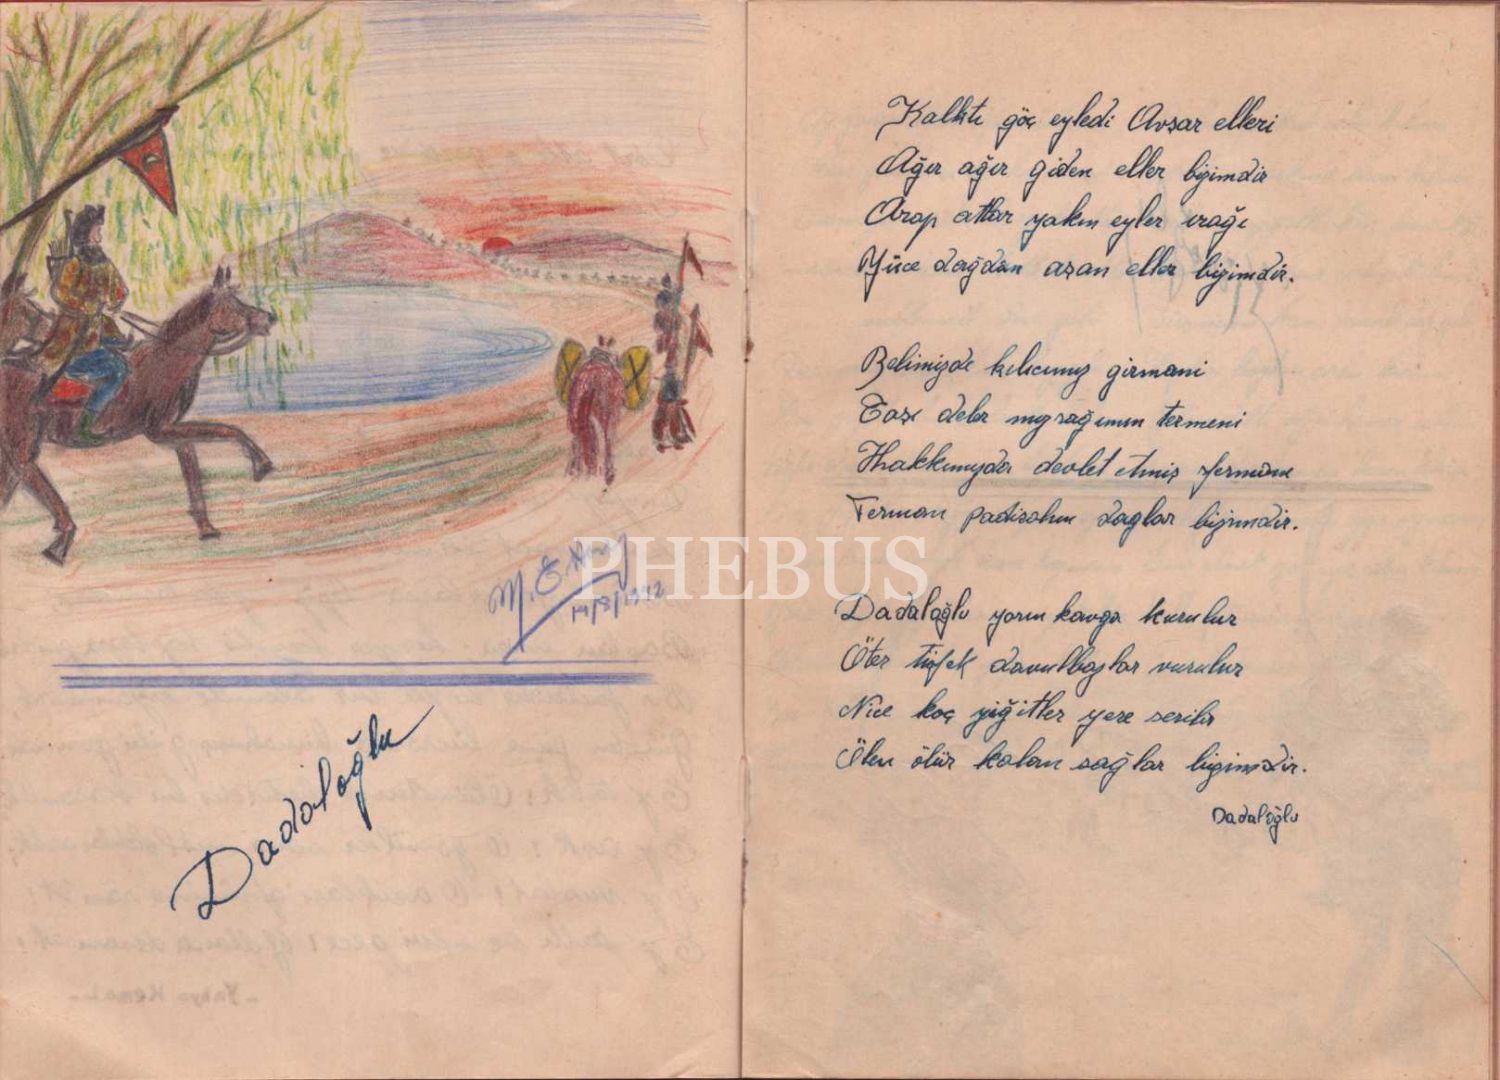 M. E.
14/8/1942
Dadaloğlu
Kalktı göç eyledi Avşar elleri
Ağır ağır giden eller bizimdir
Arap atlar yakın eyler ırağı
Yüce dağdan aşan eller bizimdir.
Belimizde kılıcımız girmani
Taşı deler mızrağımın termeni
Hakkımızda devlet etmiş fermanı
Ferman padişahın dağlar bizimdir.
Dadaloğlu yarın kavga kurulur
Öter tüfek davulbazlar vurulur
Nice koç yiğitler yere serilir
Ölen ölür kalan sağlar bizimdir.
Dadaloğlu
PHEBUS